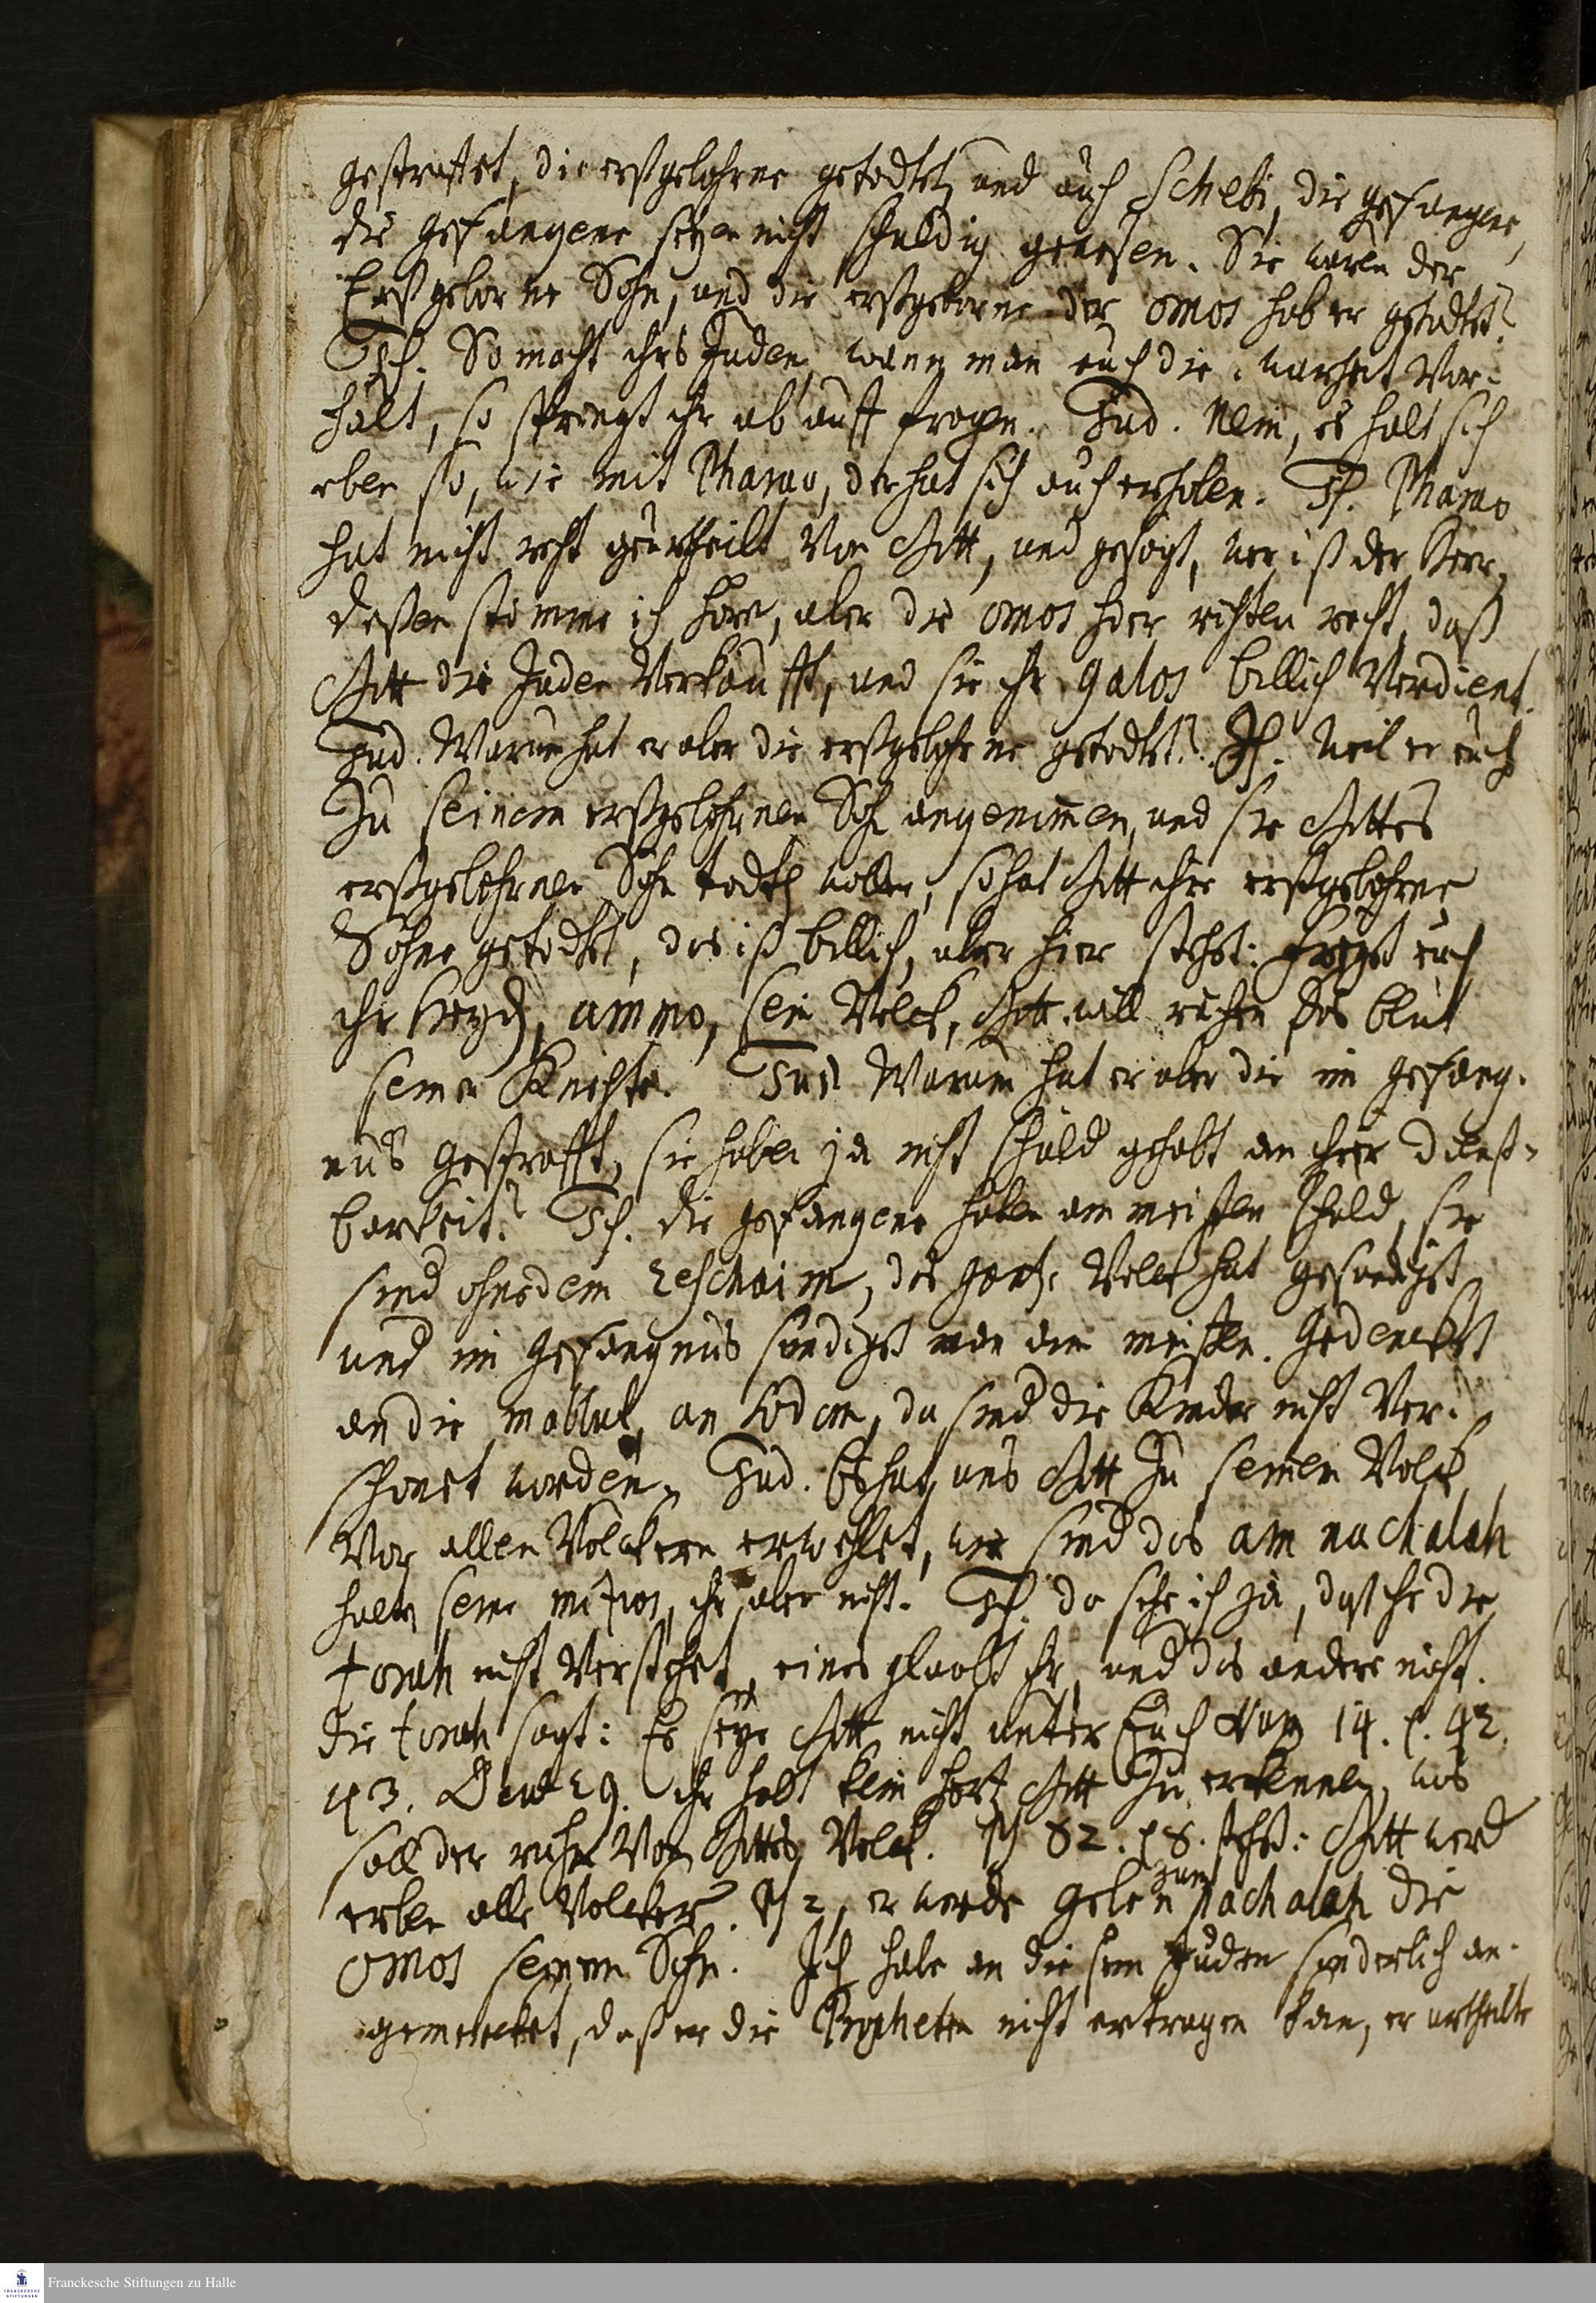 gestraffet, die erstgebohrne getödtet, und auch Schebi, die gefangene,
die gefangene seyen nicht schuldig gewesen. Sie waren der
Erstgeborne Sohn, und die erstgeborne der omos hab er getödtet?
Ich. So macht ihrs Juden, wenn man euch die warheit vor-
hält, so springt ihr ab auff fragen. Jud. Nein, es halt sich
eben so, wie mit Pharao, der hat sich auch erhoben. Ich. Pharao
hat nicht recht geurtheilt von Gott, und gesagt, wer ist der Herr,
deßen stimme ich höre, aber die omos hier richten recht, daß
Gott die Juden verkaufft, und sie ihr galos billich verdient.
Jud. Warum hat er aber die erstgebohrne getödtet? Ich. Weil er euch
zu seinem erstgebohrnen Sohn angenom̄en, und sie Gottes
erstgebohrnen Sohn tödten wollen, so hat Gott ihre erstgebohrne
Söhne getödtet, das ist billich, aber hier stehet: freyet euch
ihr Heyden, ammo, sein Volck, Gott will rächen das blut
seiner Knechte. Jud Warum hat er aber die im gefäng-
nus gestrafft, sie haben ja nicht schuld gehabt an ihrer dienst-
barkeit? Ich. die gefangene haben am meisten schuld, sie
sind ohnedem reschaim, das gantze Volck hat gesündiget
und im gefängnus sündiget man am meisten. Gedencket
an die mabbul, an Sodom, da sind die Kinder nicht ver-
schonet worden. Jud. Es hat uns Gott zu seinem Volck
vor allen Völckern erwehlet, wir sind das am nachalah
halten seine mitzvos, ihr aber nicht. Ich. da sehe ich ja, daß ihr die
torah nicht verstehet, eines glaubt ihr, und das andere nicht.
die torah sagt: Es seye Gott nicht unter Euch Num 14. v. 42.
43. Deut 29. ihr habt kein hertz Gott zu erkennen, was
soll der ruhm von Gottes Volck. Ps 82. v 8. stehet: Gott werd
erben alle Völcker. Ps 2, er werde geben zum nachalah die
omos seinem Sohn. Ich habe an diesem Juden sonderlich an-
gemercket, daß er die Propheten nicht ertragen kan, er urtheilte
Franckesche Stiftungen zu Halle